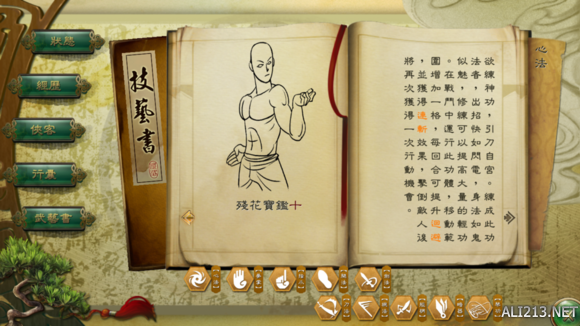 狀態
經歷
俠客
行囊
技藝書
技藝書
殘花寶鑑十
心法
欲練神功，引刀自宮。練成此功
法者，出招快如閃電，身法如鬼
似魅，修練可以提高大量的輕功
。在戰鬥中運行此功體，移動範
圍增加一格，每回合可提升閃避
，並獲得連斬效果，擊倒敵人後
將再次獲得一次行動機會。
ALI213.NET